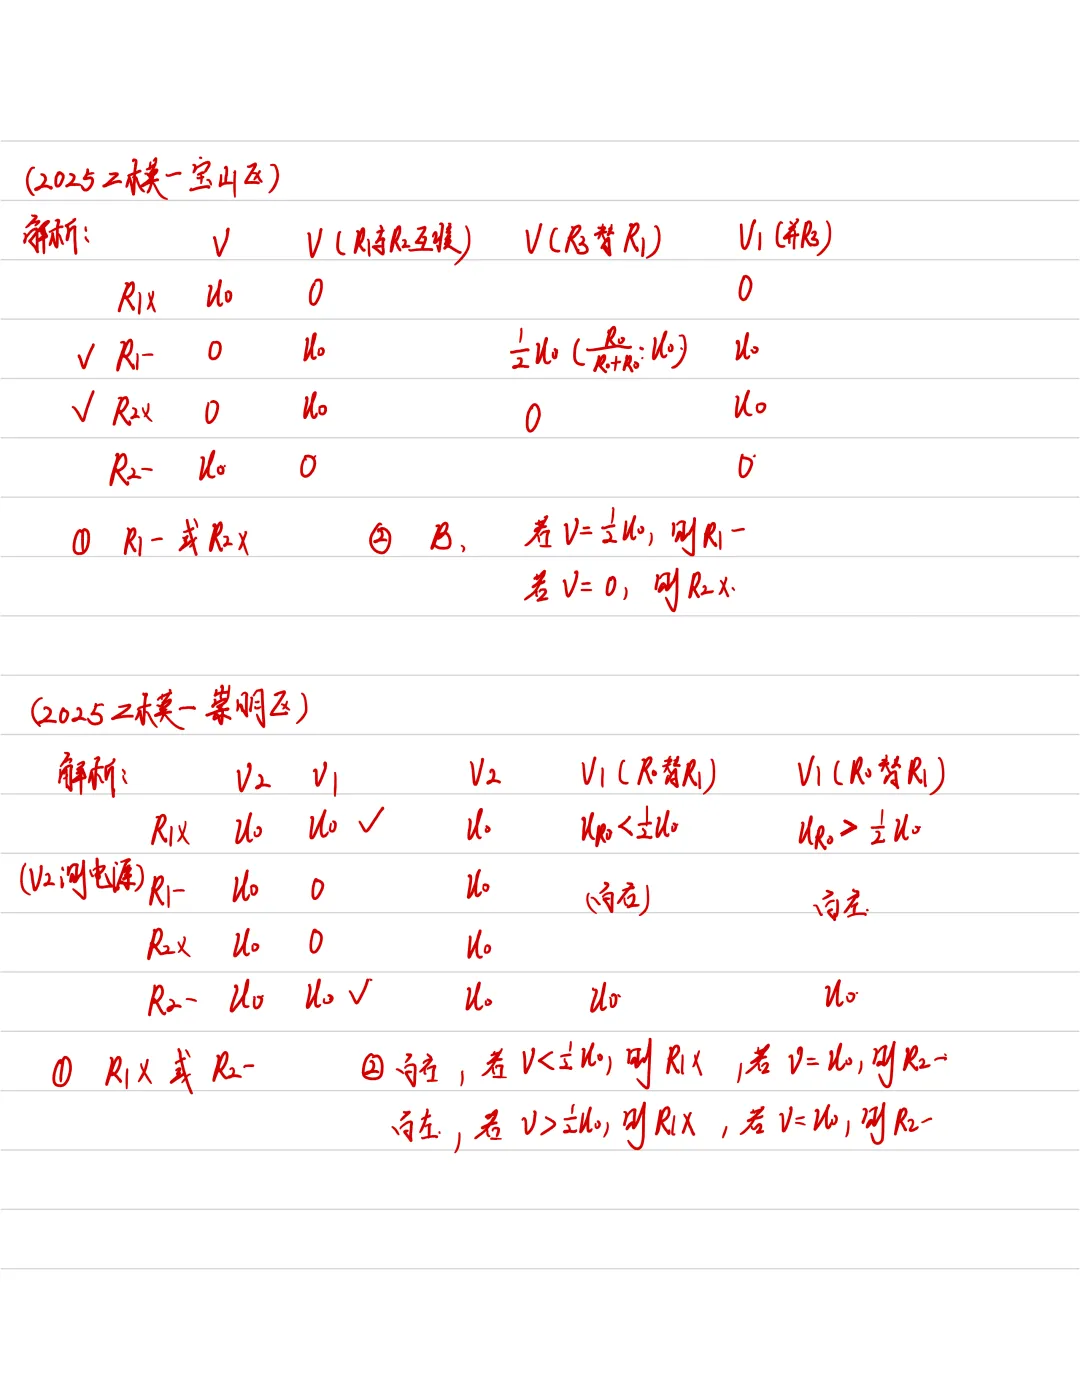 (2025二模一宝山区)
解析: V V(R1与R2互换) V(R3替R1) V1(并R3)
R1× U0 0 0
✓ R1- 0 U0 ½U0 (R0/(R0+R0)·U0) U0
✓ R2× 0 U0 0 U0
R2- U0 0 0
① R1-或R2× ② B、 若V=½U0, 则R1-
若V=0, 则R2×.
(2025二模一崇明区)
解析: V2 V1 V2 V1(R0替R1) V1(R0替R1)
R1× U0 U0 ✓ U0 UR0<½U0 UR0>½U0
(V2测电源) R1- U0 0 U0 (向右) 向左.
R2× U0 0 U0
R2- U0 U0 ✓ U0 U0 U0
① R1×或R2- ② 向右, 若V<½U0, 则R1×, 若V=U0, 则R2-
向左, 若V>½U0, 则R1×, 若V=U0, 则R2-